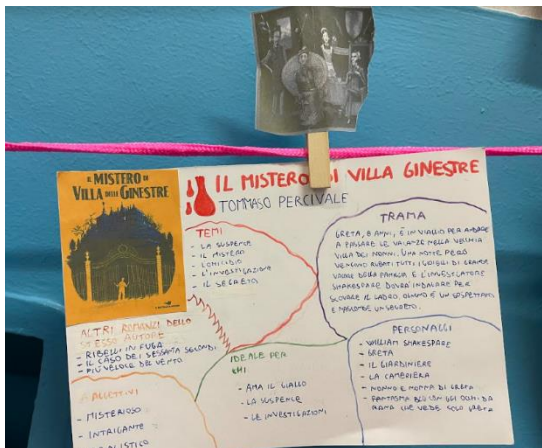 IL MISTERO DI
VILLA DELLE GINESTRE
IL MISTERO DI VILLA GINESTRE
TOMMASO PERCIVALE
TEMI
- LA SUSPENSE
- IL MISTERO
- L'OMICIDIO
- L'INVESTIGAZIONE
- IL SEGRETO
TRAMA
GRETA, 8 ANNI, È IN VIAGGIO PER ANDARE
A PASSARE LE VACANZE NELLA VECCHIA
VILLA DEI NONNI. UNA NOTTE PERÒ
VENGONO RUBATI TUTTI I GIOIELLI DI GRANDE
VALORE DELLA FAMIGLIA E L'INVESTIGATORE
SHAKESPEARE DOVRÀ INDAGARE PER
SCOVARE IL LADRO, OGNUNO È UN SOSPETTATO
E NASCONDE UN SEGRETO.
ALTRI ROMANZI DELLO
STESSO AUTORE
- RIBELLI IN FUGA
- IL CASO DEI SESSANTA SECONDI
- PIÙ VELOCE DEL VENTO
IDEALE PER
CHI
- AMA IL GIALLO
- LA SUSPENSE
- LE INVESTIGAZIONI
PERSONAGGI
- WILLIAM SHAKESPEARE
- GRETA
- IL GIARDINIERE
- LA CAMERIERA
- NONNO E NONNA DI GRETA
- FANTASMA BLU CON GLI OCCHI DA
RANA CHE VEDE SOLO GRETA
AGGETTIVI
- MISTERIOSO
- INTRIGANTE